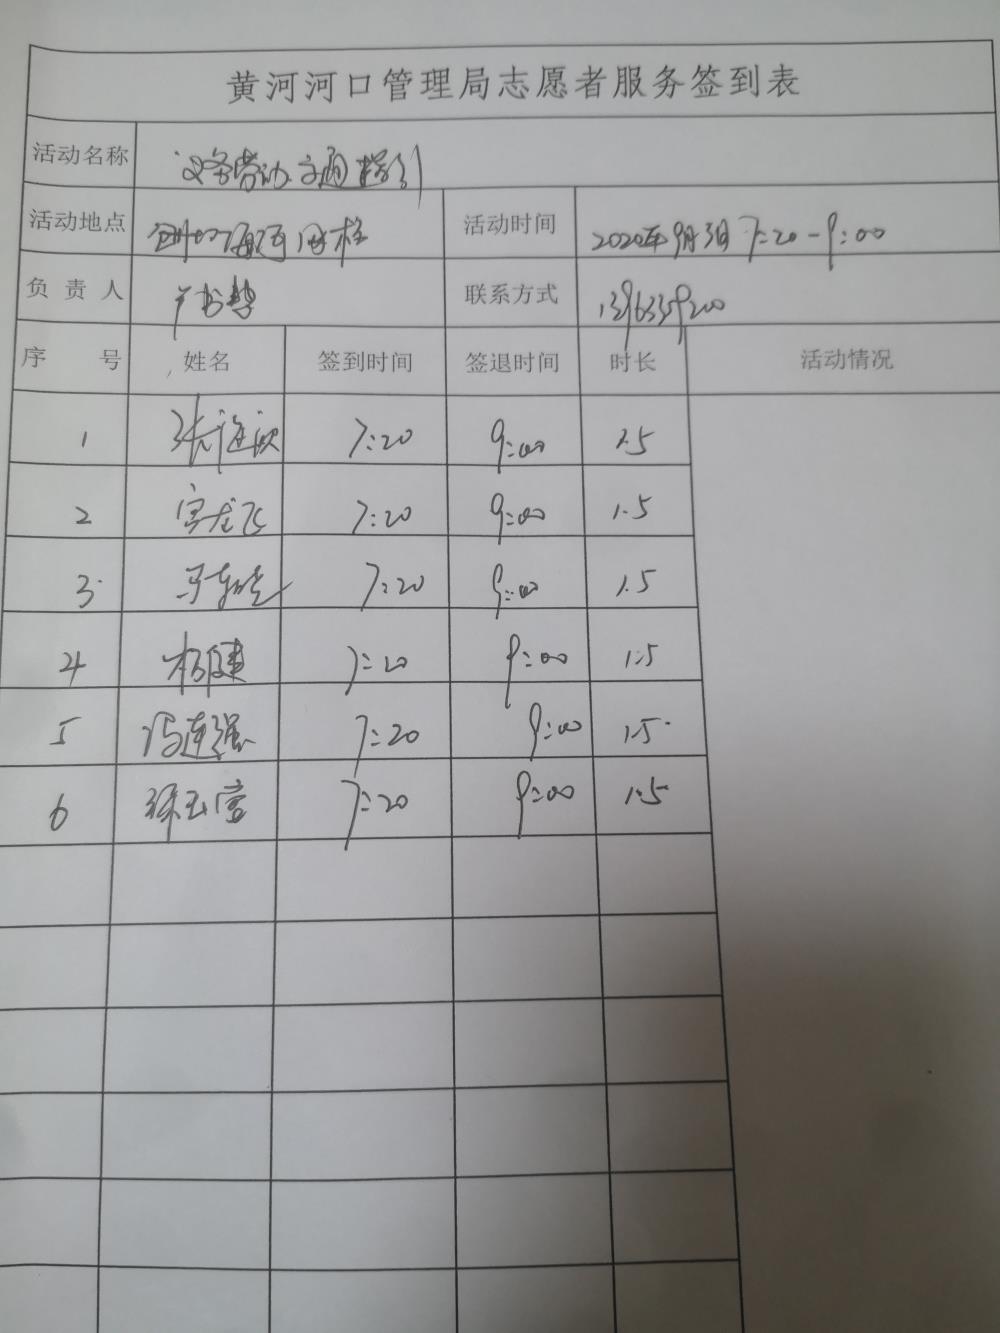 黄河河口管理局志愿者服务签到表
活动名称 义务劳动、交通指引
活动地点 活动时间 2020年9月3日 7:20-9:00
负责人 联系方式
序号 姓名 签到时间 签退时间 时长 活动情况
1 7:20 9:00 1.5
2 宫龙飞 7:20 9:00 1.5
3 7:20 9:00 1.5
4 杨健 7:20 9:00 1.5
5 冯连强 7:20 9:00 1.5
6 7:20 9:00 1.5